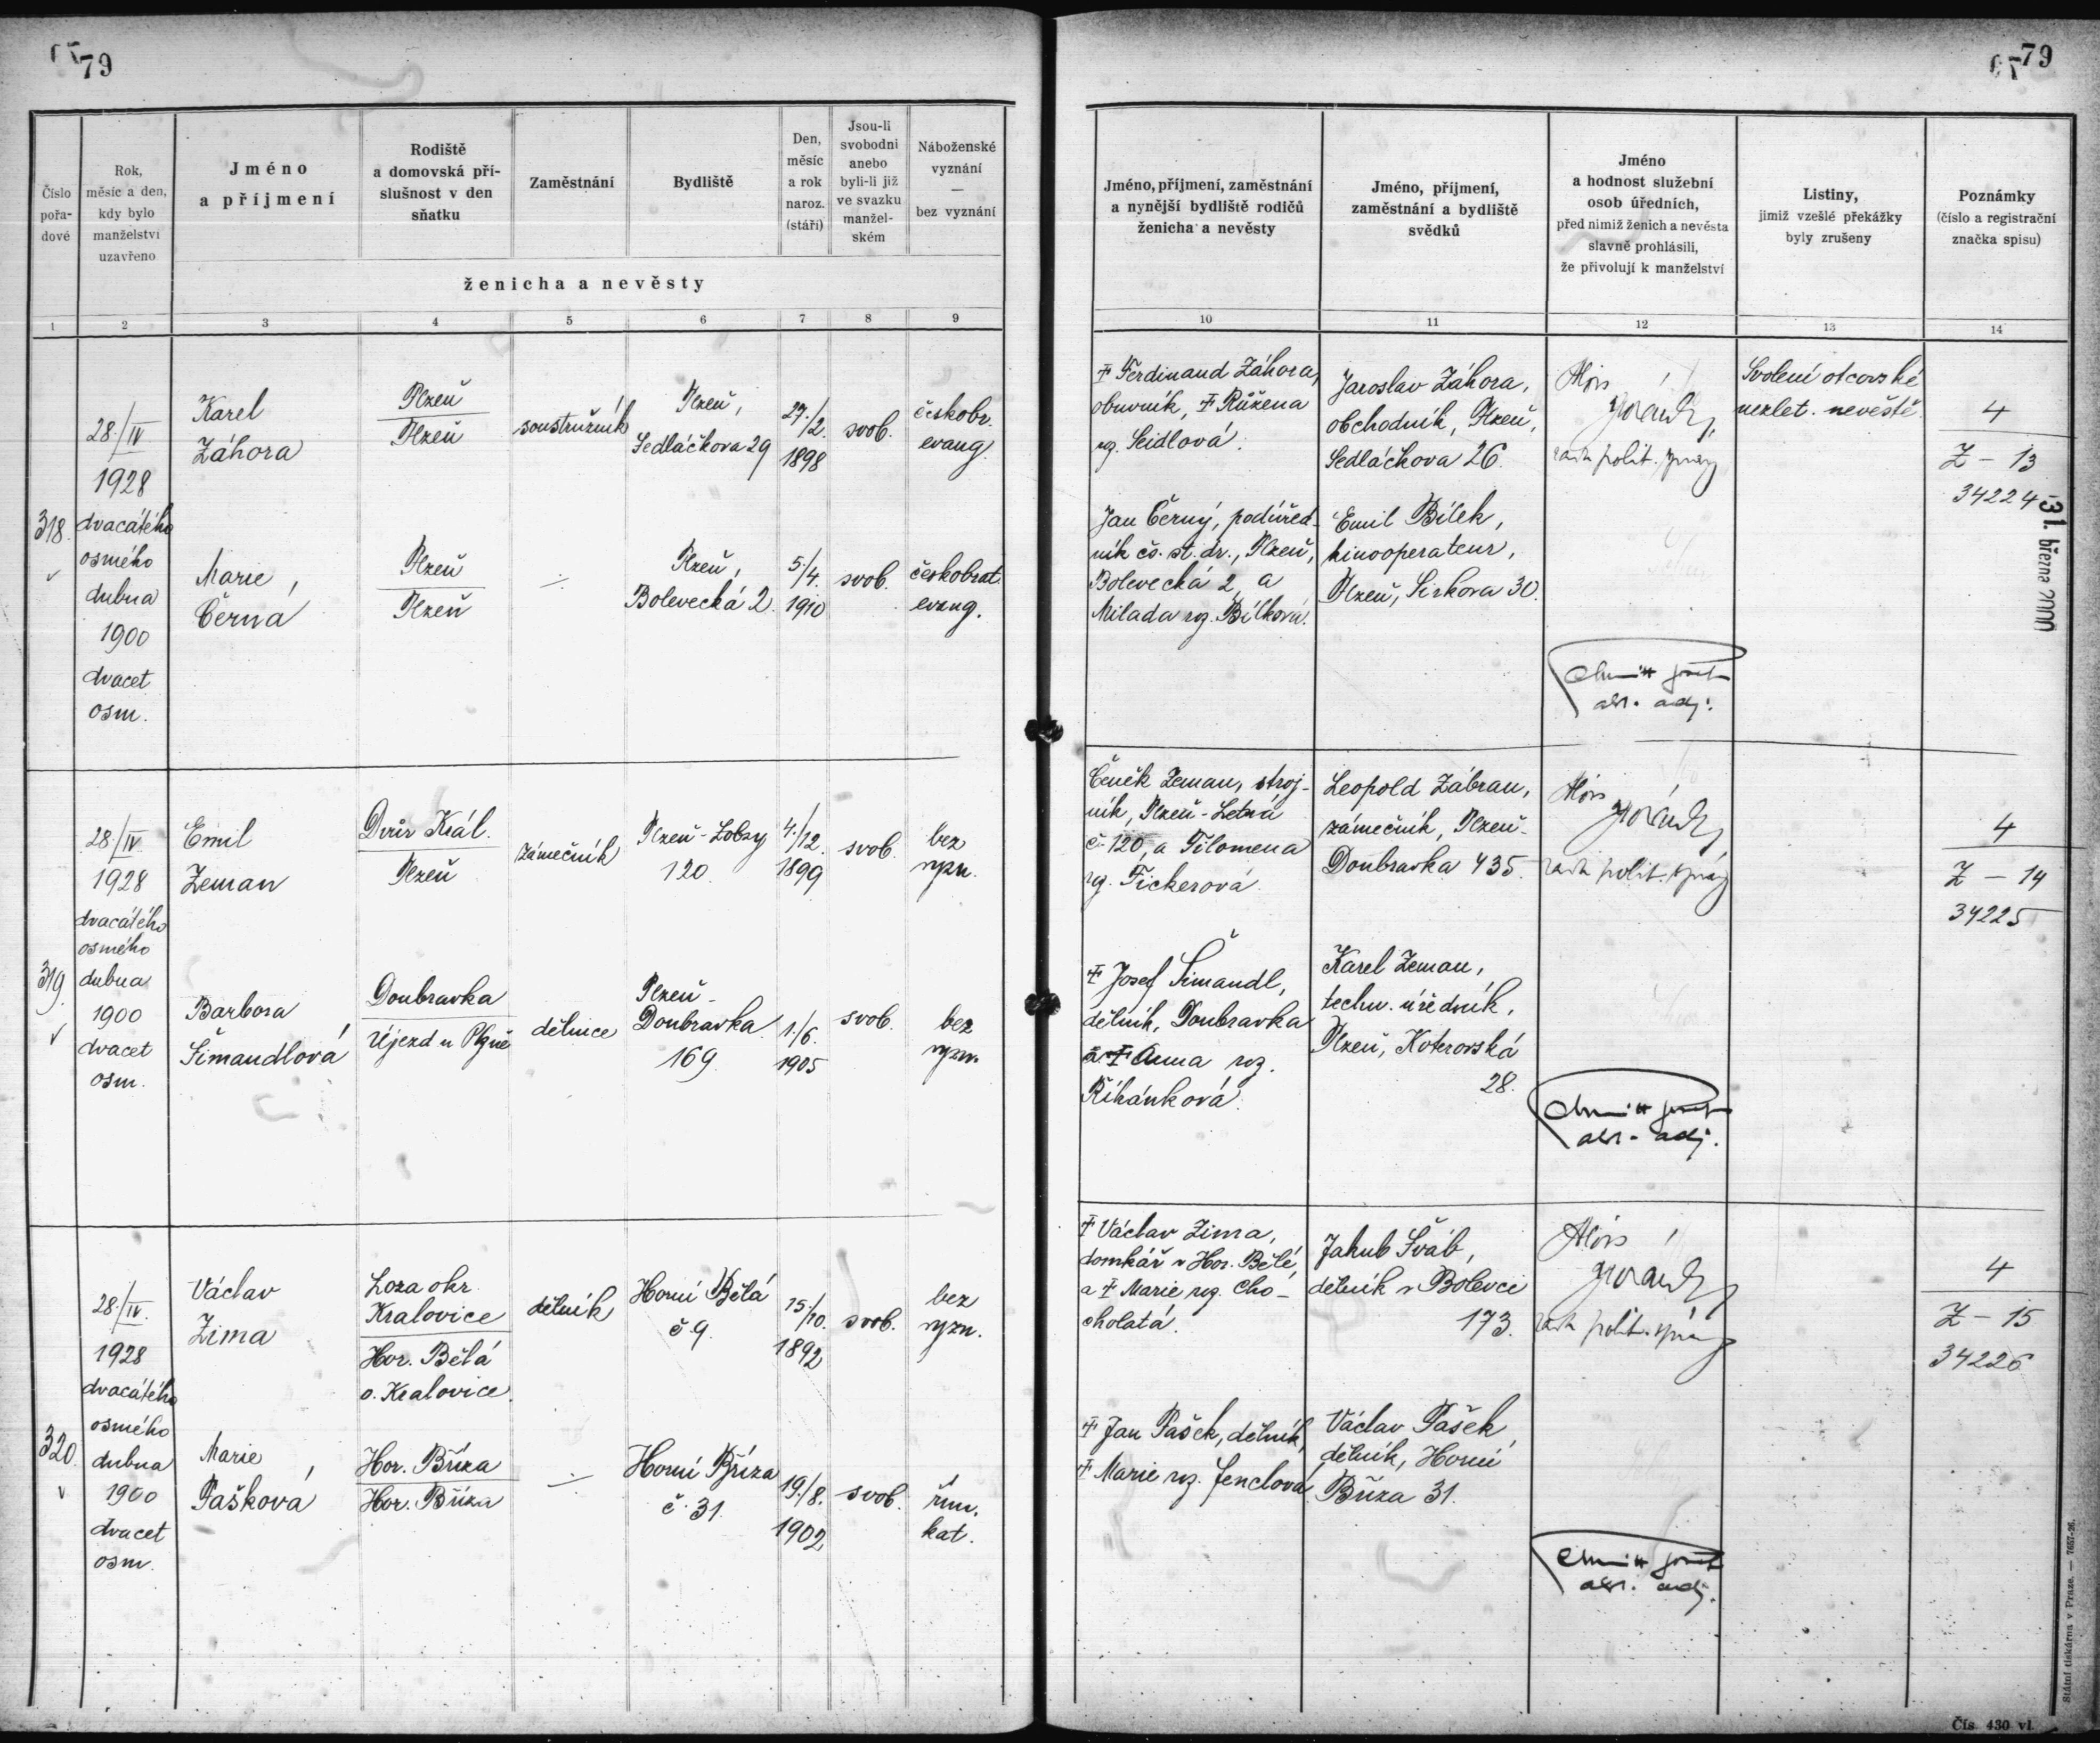 79
79
Číslo pořadové
Rok, měsíc a den, kdy bylo manželství uzavřeno
Jméno a příjmení
Rodiště a domovská příslušnost v den sňatku
Zaměstnání
Bydliště
Den, měsíc a rok naroz. (stáří)
Jsou-li svobodni anebo byli-li již ve svazku manželském
Náboženské vyznání — bez vyznání
ženicha a nevěsty
1 2 3 4 5 6 7 8 9
Jméno, příjmení, zaměstnání a nynější bydliště rodičů ženicha a nevěsty
Jméno, příjmení, zaměstnání a bydliště svědků
Jméno a hodnost služební osob úředních, před nimiž ženich a nevěsta slavně prohlásili, že přivolují k manželství
Listiny, jimiž vzešlé překážky byly zrušeny
Poznámky (číslo a registrační značka spisu)
10 11 12 13 14
318.
28./IV
1928
dvacátého
osmého
dubna
1900
dvacet
osm.
Karel
Záhora
Plzeň
Plzeň
soustružník
Plzeň,
Sedláčkova 29
27./2.
1898
svob.
českobr.
evang.
Marie
Černá
Plzeň
Plzeň
Plzeň,
Bolevecká 2.
5/4.
1910
svob.
českobrat.
evang.
Ferdinand Záhora,
obuvník, Růžena
roz. Seidlová.
Jan Černý, podúřed-
ník čs. st. dr., Plzeň,
Bolevecká 2, a
Milada roz. Bílková.
Jaroslav Záhora,
obchodník, Plzeň,
Sedláčkova 26.
Emil Bílek,
kinooperateur,
Plzeň, Sirkova 30.
Alois
rada polit. správy
adj.
Svolení otcovské
nezlet. nevěstě.
4
Z - 13
34224
31. března 2000
319.
28./IV
1928
dvacátého
osmého
dubna
1900
dvacet
osm.
Emil
Zeman
Dvůr Král.
Plzeň
zámečník
Plzeň-Lobzy
120.
4./12.
1899
svob.
bez
vyzn.
Barbora
Šimandlová
Doubravka
Újezd u Plzně
dělnice
Plzeň-
Doubravka
169.
1./6.
1905
svob.
bez
vyzn.
Čeněk Zeman, stroj-
ník, Plzeň-Letná
č. 120, a Filomena
roz. Fickerová.
Josef Šimandl,
dělník, Doubravka
a Anna roz.
Říhánková.
Leopold Zábran,
zámečník, Plzeň-
Doubravka 435.
Karel Zeman,
techn. úředník,
Plzeň, Koterovská
28.
Alois
rada polit. správy
adj.
4
Z - 14
34225
320.
28./IV.
1928
dvacátého
osmého
dubna
1900
dvacet
osm.
Václav
Zima
Loza okr.
Kralovice
Hor. Bělá
o. Kralovice.
dělník
Horní Bělá
č 9.
15./10.
1892
svob.
bez
vyzn.
Marie
Pašková
Hor. Bříza
Hor. Bříza
Horní Bříza
č. 31.
19./8.
1902
svob.
řím.
kat.
Václav Zima,
domkář v Hor. Bělé,
a Marie roz. Cho-
cholatá.
Jan Pašek, dělník,
Marie roz. Jenclová
Jakub Šváb,
dělník v Bolevci
173.
Václav Pašek,
dělník, Horní
Bříza 31.
Alois
rada polit. správy
adj.
4
Z - 15
34226
Státní tiskárna v Praze. — 7657-26.
Čís. 430 vl.